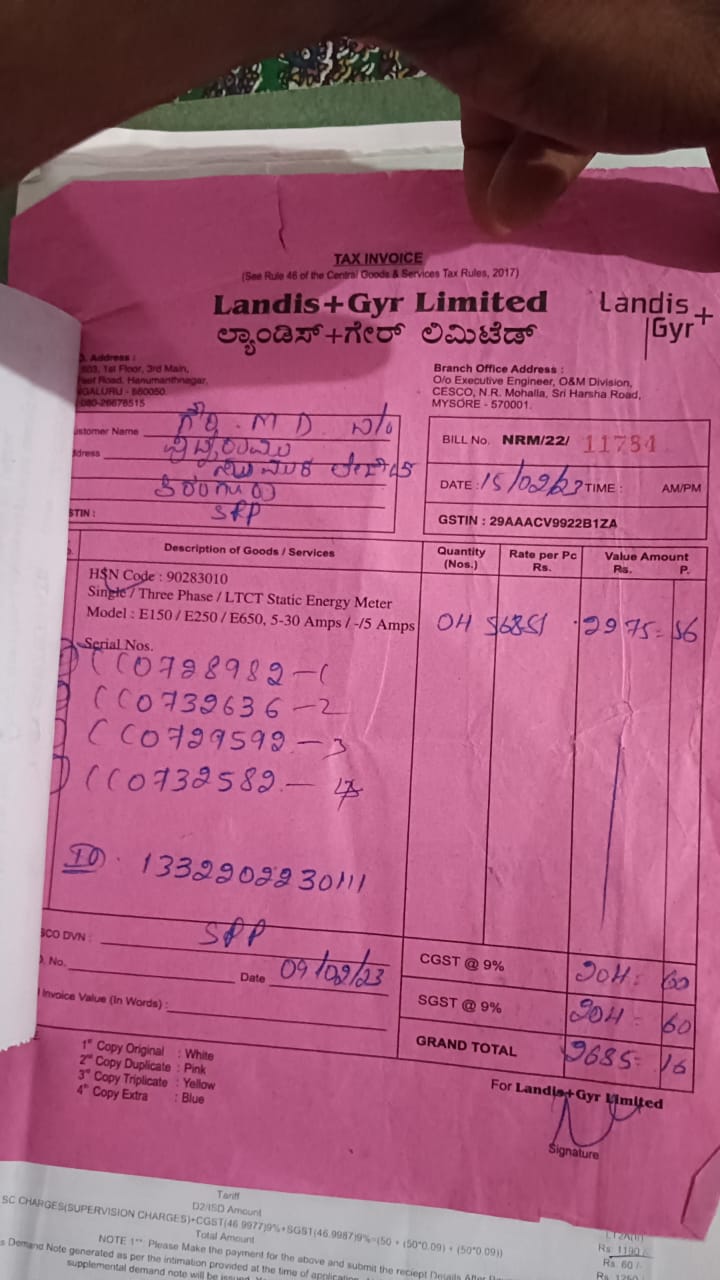 TAX INVOICE
(See Rule 46 of the Central Goods & Services Tax Rules, 2017)
Landis+Gyr Limited
ಲ್ಯಾಂಡಿಸ್+ಗೇರ್ ಲಿಮಿಟೆಡ್
Landis+
Gyr
Address :
1st Floor, 3rd Main,
Road, Hanumanthnagar,
560050.
080-26676515
Branch Office Address :
O/o Executive Engineer, O&M Division,
CESCO, N.R. Mohalla, Sri Harsha Road,
MYSORE - 570001.
Customer Name M D
SPP
BILL No. NRM/22/ 11754
DATE : 15/02/23 TIME : AM/PM
GSTIN : 29AAACV9922B1ZA
Description of Goods / Services
Quantity (Nos.)
Rate per Pc Rs.
Value Amount Rs. P.
HSN Code : 90283010
Single / Three Phase / LTCT Static Energy Meter
Model : E150 / E250 / E650, 5-30 Amps / -/5 Amps 04 568.51
Serial Nos.
CC0728982 - 1
CC0732636 - 2
CC0729592 - 3
CC0732582 - 4
ID. 1332902230111
DVN : SPP
No. Date 09/02/23
Invoice Value (In Words) :
CGST @ 9% 204 = 60
SGST @ 9% 204 = 60
GRAND TOTAL 2685 = 16
1st Copy Original : White
2nd Copy Duplicate : Pink
3rd Copy Triplicate : Yellow
4th Copy Extra : Blue
For Landis+Gyr Limited
Signature
Tariff
D2/ISD Amount
SC CHARGES(SUPERVISION CHARGES)+CGST(46.9977)9%+SGST(46.9987)9%=(50 + (50*0.09) + (50*0.09))
Total Amount
Rs. 1190 /-
Rs. 60 /-
NOTE 1**: Please Make the payment for the above and submit the reciept Details After
Demand Note generated as per the intimation provided at the time of
supplemental demand note will be